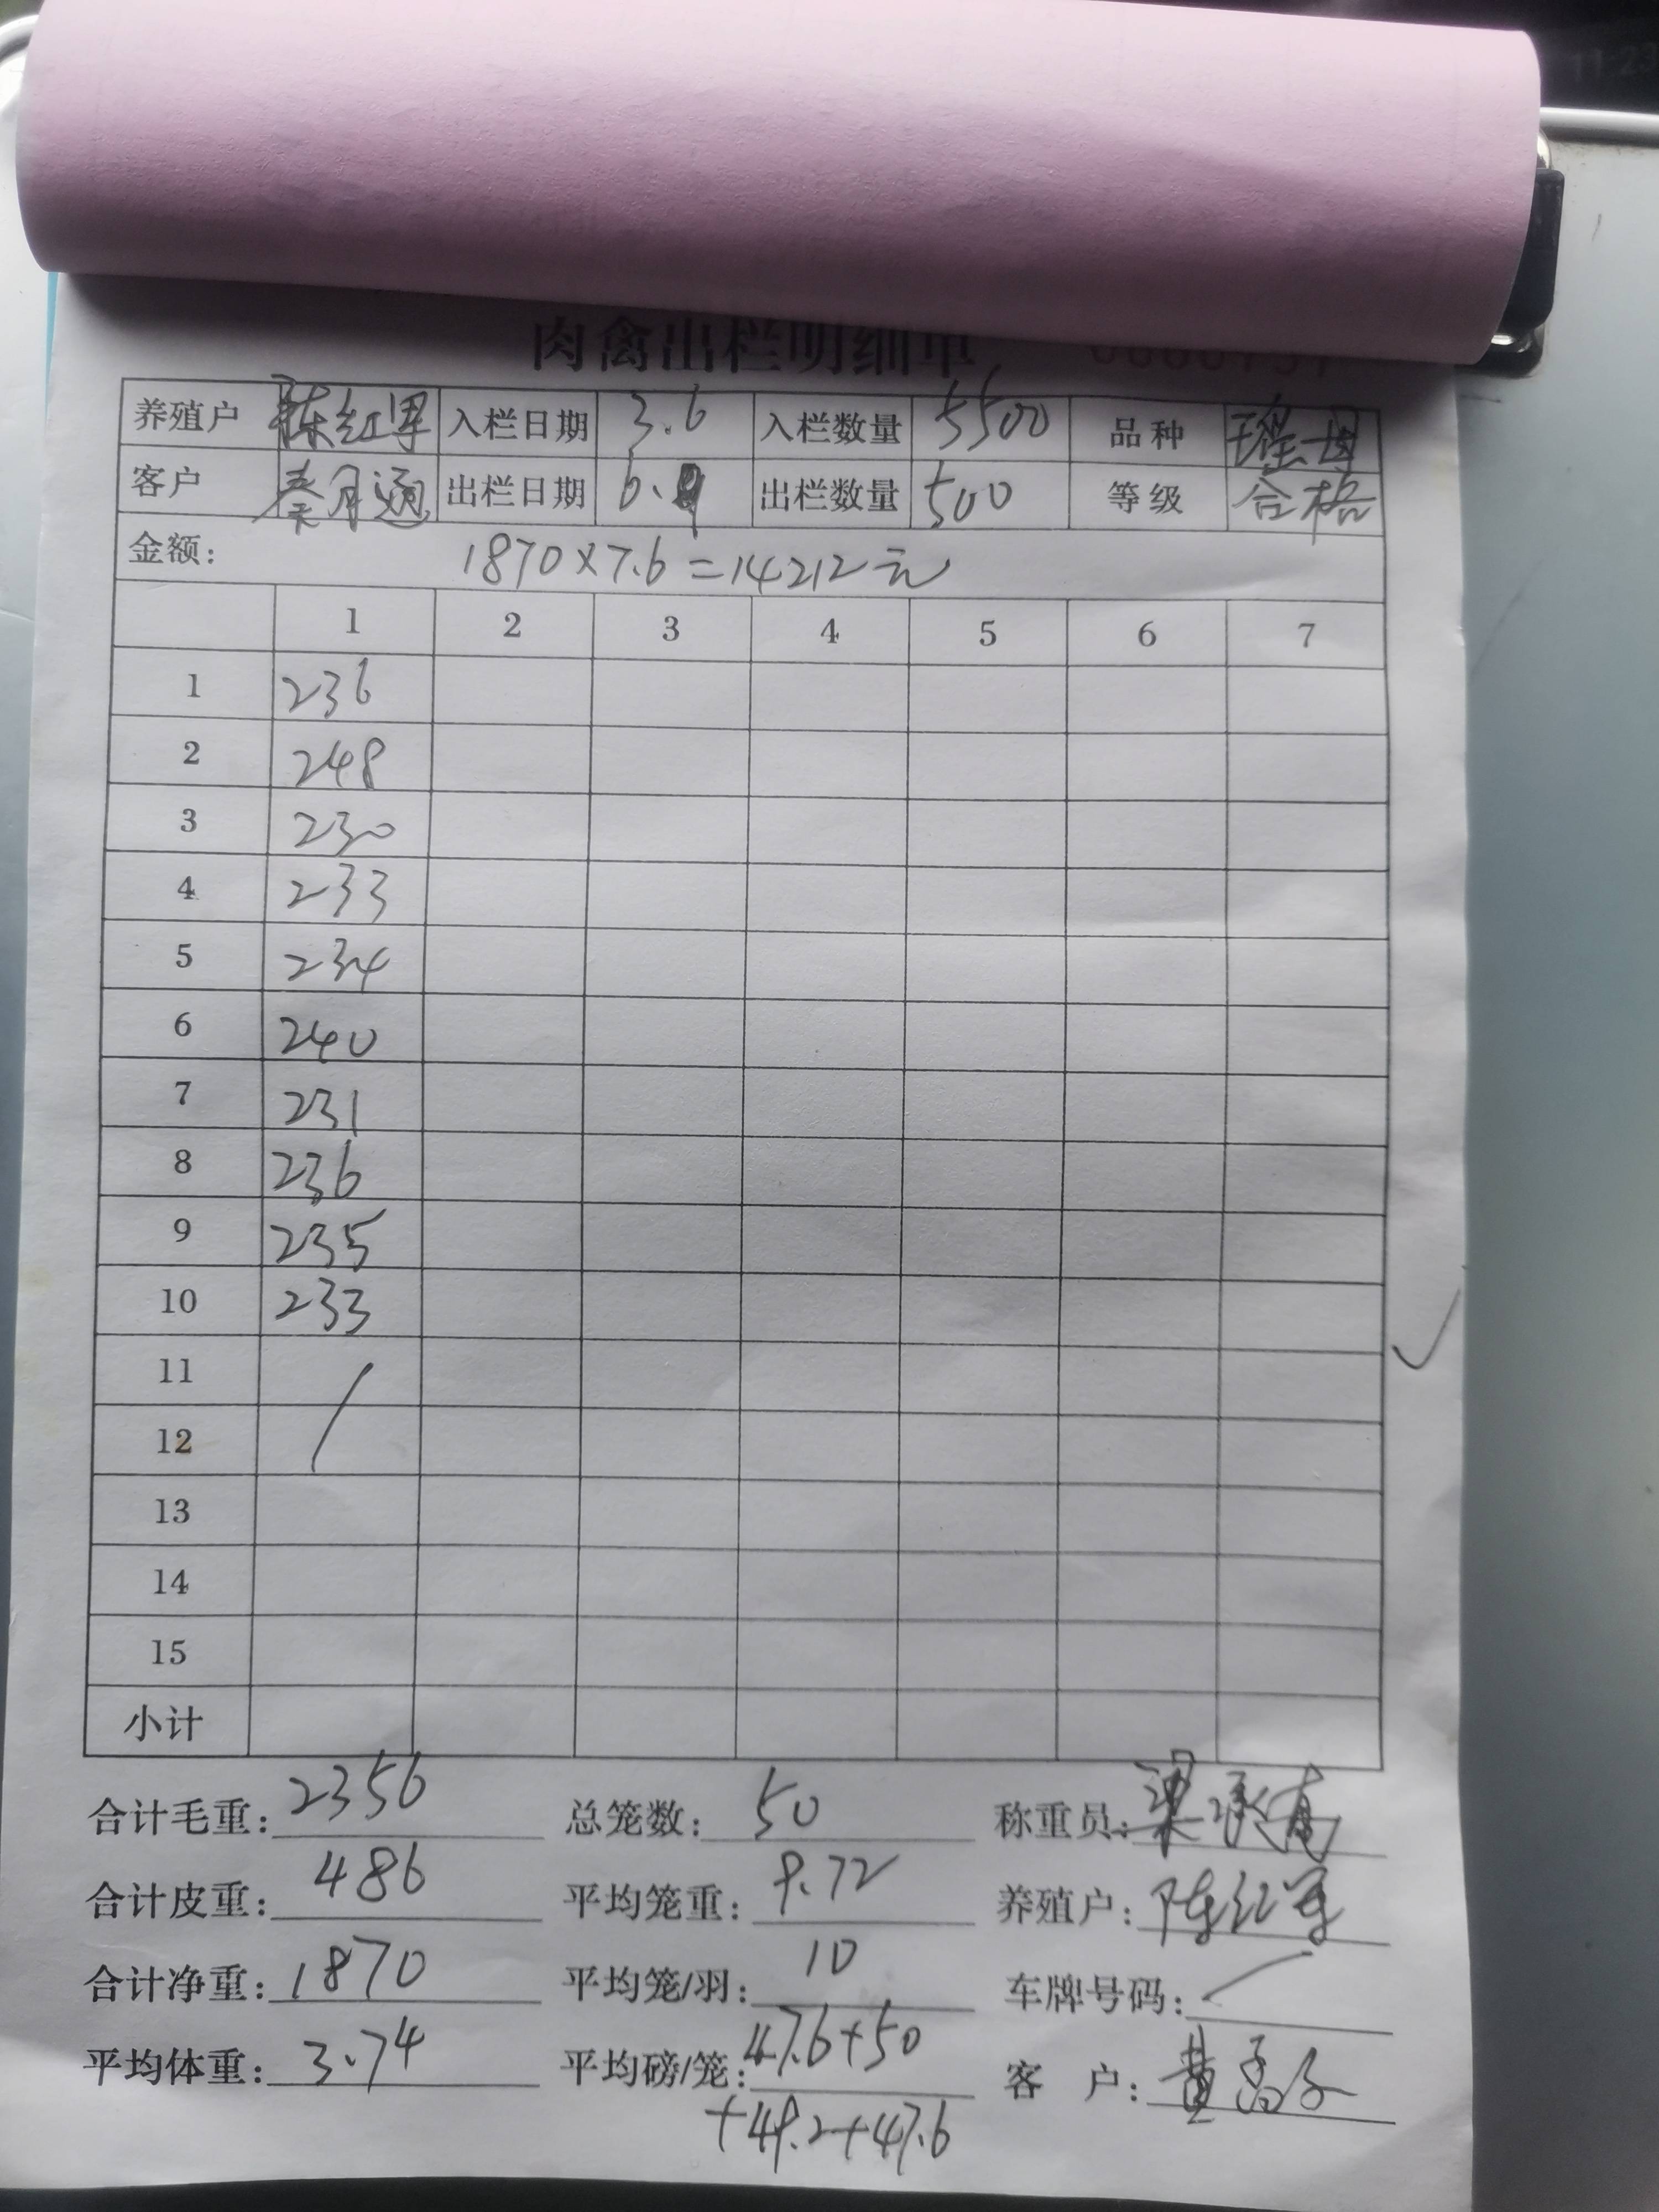 肉禽出栏明细单
养殖户 陈红军 入栏日期 3.6 入栏数量 5500 品种 瑶母
客户 秦月通 出栏日期 6. 出栏数量 500 等级 合格
金额: 1870×7.6=14212元
1 2 3 4 5 6 7
1 236
2 248
3 230
4 233
5 234
6 240
7 231
8 236
9 235
10 233
11 /
12
13
14
15
小计
合计毛重: 2356 总笼数: 50 称重员: 梁
合计皮重: 486 平均笼重: 9.72 养殖户: 陈红军
合计净重: 1870 平均笼/羽: 10 车牌号码: /
平均体重: 3.74 平均磅/笼: 47.6+50 客 户: 黄
+49.2+47.6